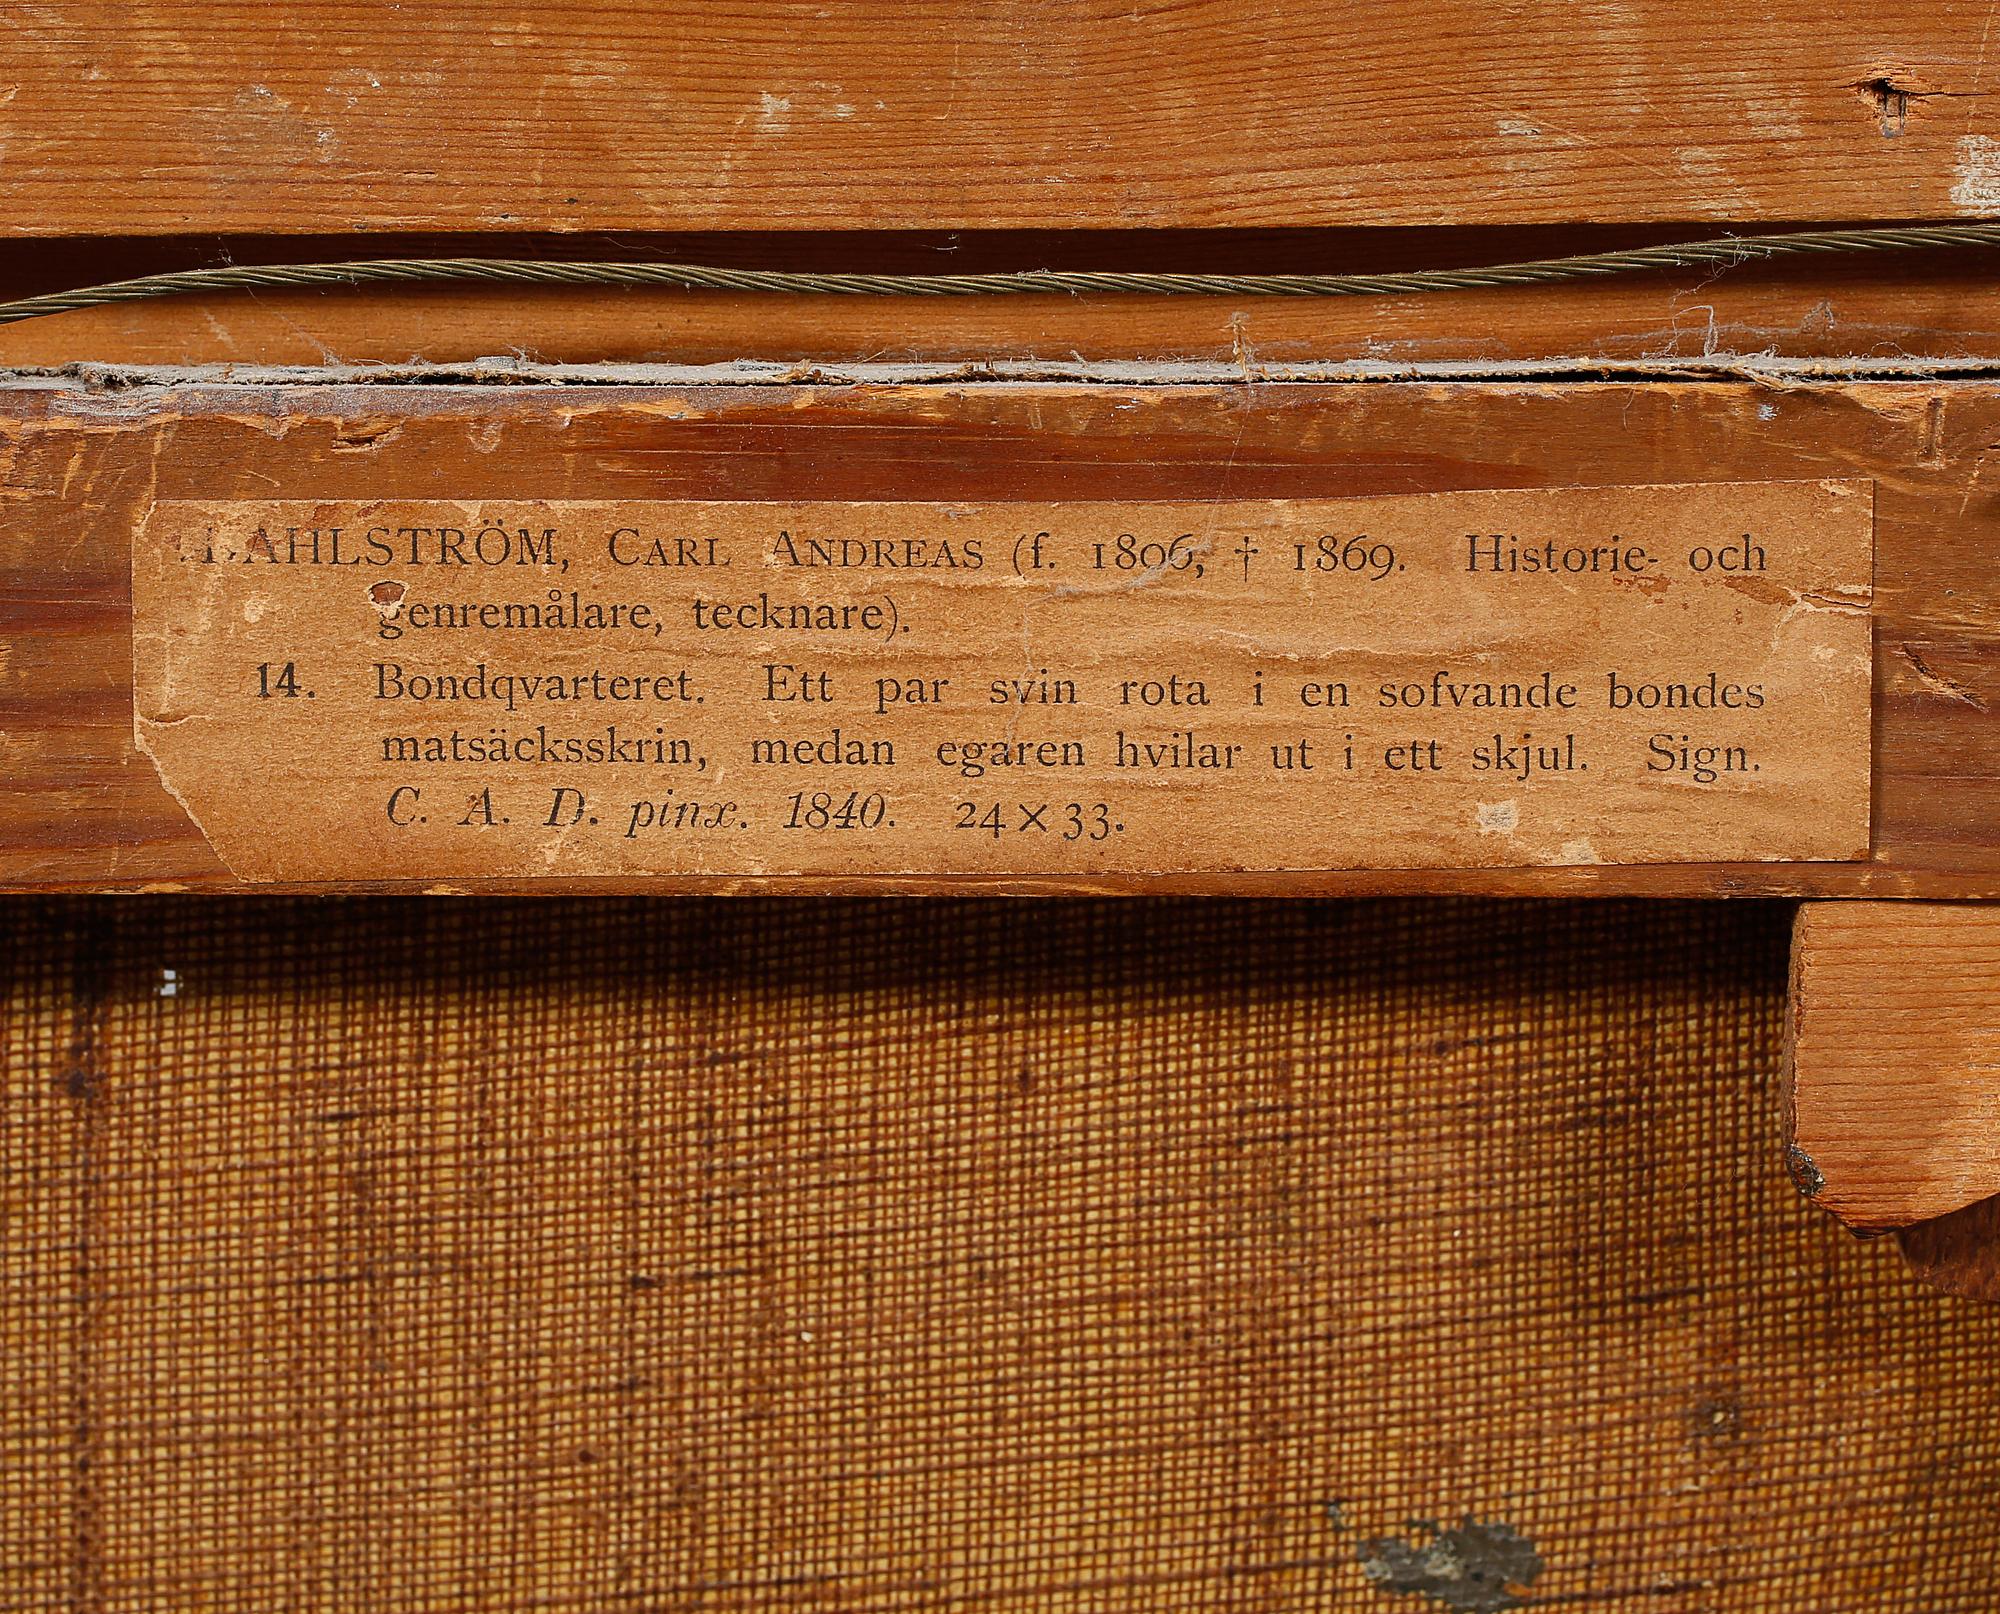 DAHLSTRÖM, CARL ANDREAS (f. 1806, † 1869. Historie- och
genremålare, tecknare).
14. Bondqvarteret. Ett par svin rota i en sofvande bondes
matsäcksskrin, medan egaren hvilar ut i ett skjul. Sign.
C. A. D. pinx. 1840. 24 × 33.